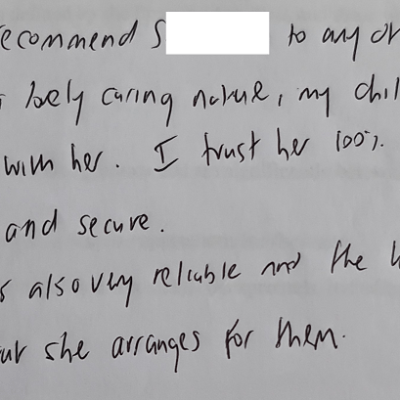 recommend S to any or
lovely caring nature, my chil
with her. I trust her 100%.
and secure.
s also very reliable and the h
she arranges for them.